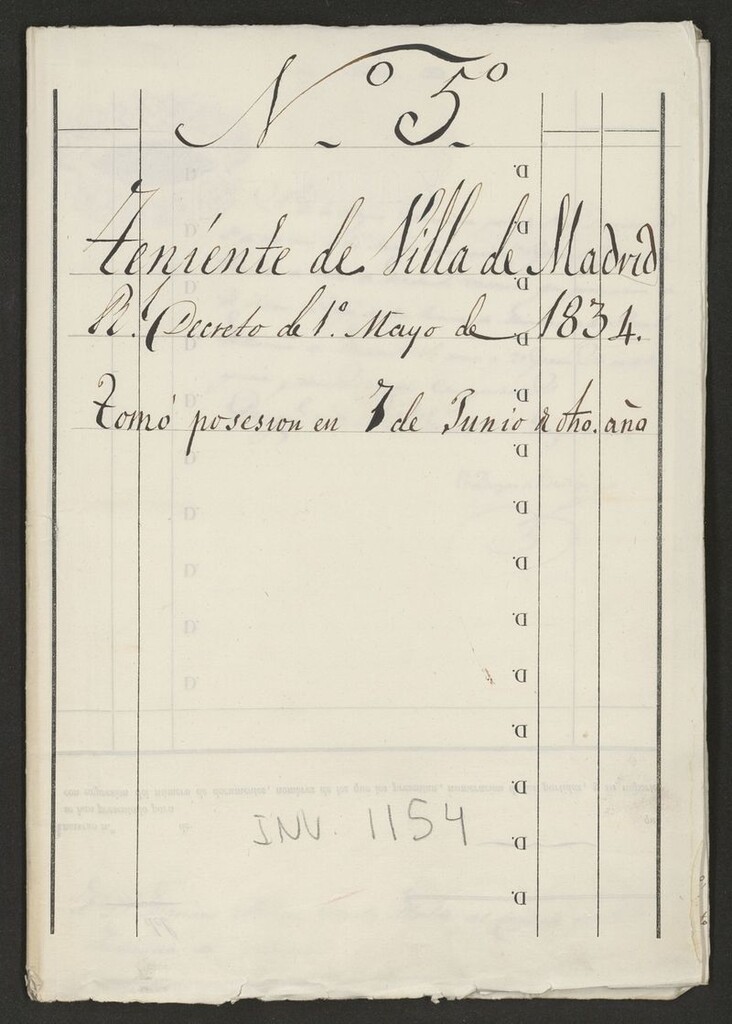 N.º 5.º
Teniente de Villa de Madrid
Rl. Decreto de 1º. Mayo de 1834.
Tomó posesion en 7 de Junio de dho. año
D.
D.
D.
D.
D.
D.
D.
D.
D.
D.
D.
D.
D.
D.
INV. 1154